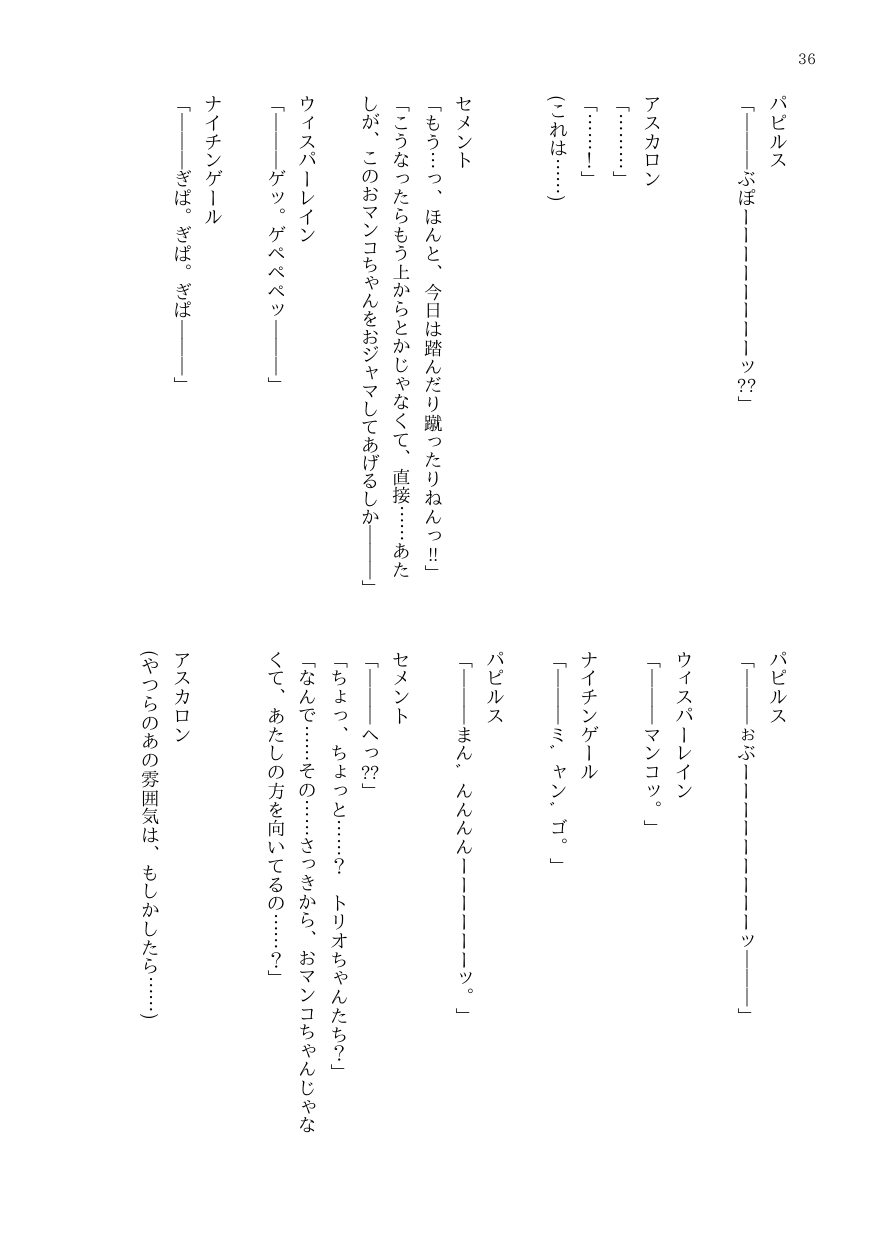 36
パピルス
「―――ぶぽーーーーーーーーッ??」
アスカロン
「………」
「……！」
(これは……)
セメント
「もう…っ、ほんと、今日は踏んだり蹴ったりねんっ!!」
「こうなったらもう上からとかじゃなくて、直接……あた
しが、このおマンコちゃんをおジャマしてあげるしか―――」
ウィスパーレイン
「―――ゲッ。ゲペペペッ―――」
ナイチンゲール
「―――ぎぱ。ぎぱ。ぎぱ―――」
パピルス
「―――ぉぶーーーーーーーーーッ―――」
ウィスパーレイン
「―――マンコッ。」
ナイチンゲール
「―――ミ゛ャン゛ゴ。」
パピルス
「―――まん゛んんんーーーーーーッ。」
セメント
「―――へっ??」
「ちょっ、ちょっと……？　トリオちゃんたち？」
「なんで……その……さっきから、おマンコちゃんじゃな
くて、あたしの方を向いてるの……？」
アスカロン
(やつらのあの雰囲気は、もしかしたら……)